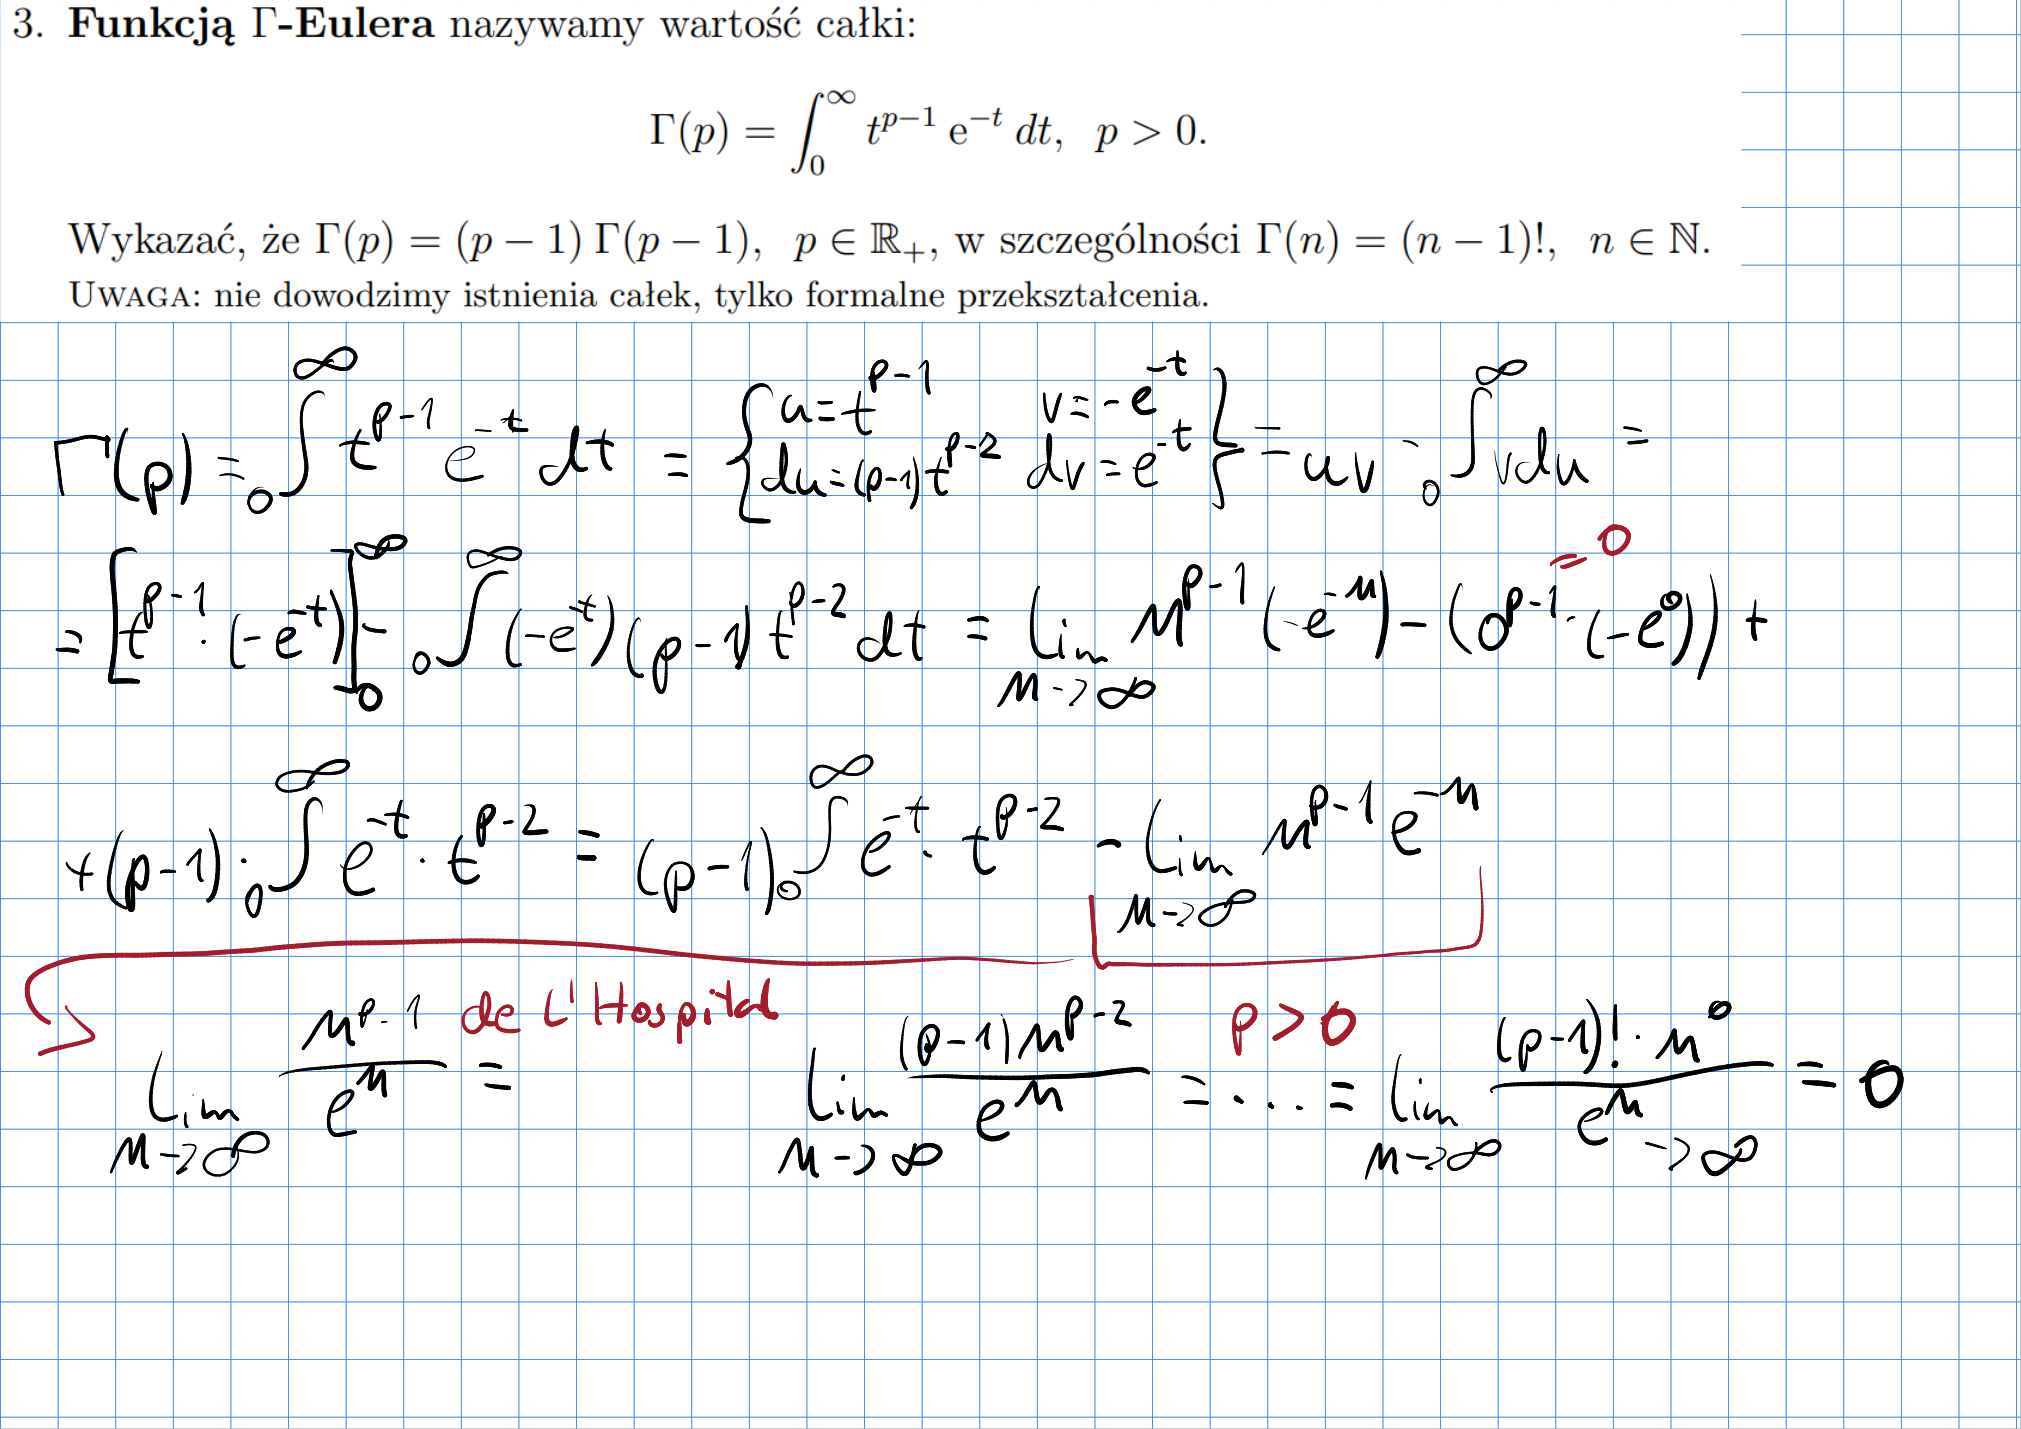 3. Funkcją Γ-Eulera nazywamy wartość całki:
Γ(p) = ∫₀^∞ t^{p−1} e^{−t} dt, p > 0.
Wykazać, że Γ(p) = (p − 1) Γ(p − 1), p ∈ ℝ₊, w szczególności Γ(n) = (n − 1)!, n ∈ ℕ.
UWAGA: nie dowodzimy istnienia całek, tylko formalne przekształcenia.
Γ(p) = ₀∫^∞ t^{p-1} e^{-t} dt = { u = t^{p-1} v = -e^{-t} du = (p-1) t^{p-2} dv = e^{-t} } = uv - ₀∫^∞ v du =
= [t^{p-1} · (-e^{-t})]₀^∞ - ₀∫^∞ (-e^{-t}) (p-1) t^{p-2} dt = lim_{n->∞} n^{p-1} (-e^{-n}) - (0^{p-1} · (-e^0)) + = 0
+ (p-1) · ₀∫^∞ e^{-t} · t^{p-2} = (p-1) ₀∫^∞ e^{-t} · t^{p-2} - lim_{n->∞} n^{p-1} e^{-n}
lim_{n->∞} n^{p-1} / e^n = de L'Hospital lim_{n->∞} (p-1) n^{p-2} / e^n = ... = p > 0 lim_{n->∞} (p-1)! · n^0 / e^n -> ∞ = 0